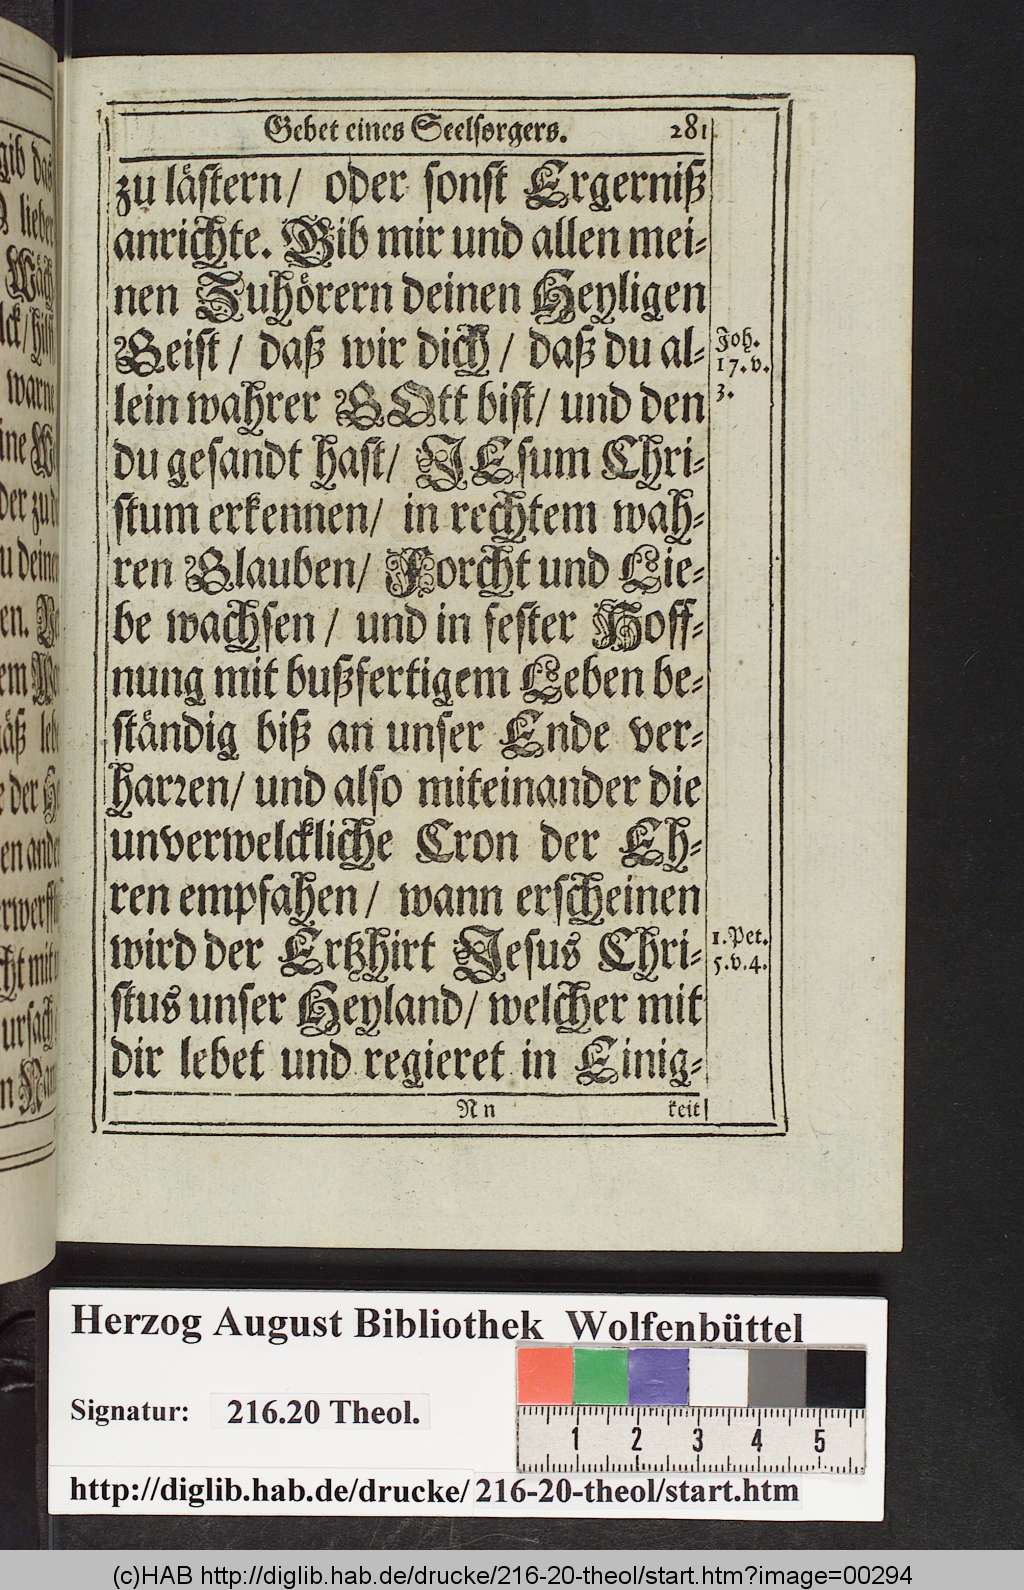 Gebet eines Seelsorgers. 281
zu lästern/ oder sonst Ergerniß
anrichte. Gib mir und allen mei-
nen Zuhörern deinen Heyligen
Geist / daß wir dich / daß du al-
lein wahrer GOtt bist/ und den
du gesandt hast/ JEsum Chri-
stum erkennen/ in rechtem wah-
ren Glauben/ Forcht und Lie-
be wachsen / und in fester Hoff-
nung mit bußfertigem Leben be-
ständig biß an unser Ende ver-
harren/ und also miteinander die
unverwelckliche Cron der Eh-
ren empfahen / wann erscheinen
wird der Ertzhirt Jesus Chri-
stus unser Heyland/ welcher mit
dir lebet und regieret in Einig-
Nn keit
Joh.
17. v.
3.
1. Pet.
5. v. 4.
gib das
lieber
Wäch
lck/ hilff
warne
ine
der zu
u deinen
en.
em
äß lebe
e der
en ander
rwerff
cht mit
ursach
n Nam
Herzog August Bibliothek Wolfenbüttel
Signatur: 216.20 Theol.
1 2 3 4 5
http://diglib.hab.de/drucke/ 216-20-theol/start.htm
(c)HAB http://diglib.hab.de/drucke/216-20-theol/start.htm?image=00294